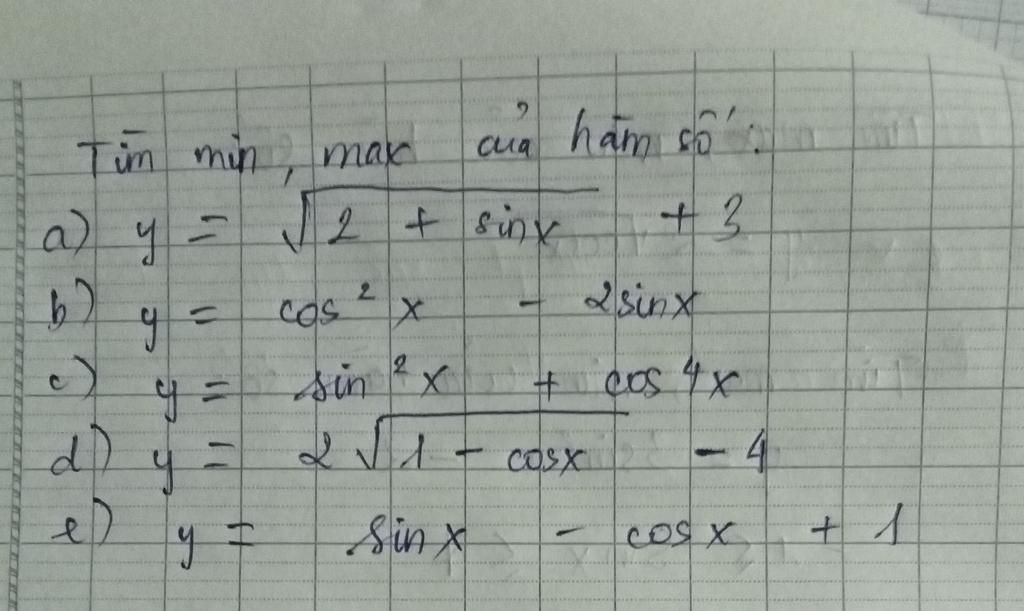 Tìm min, max của hàm số:
a) y = √(2 + sinx) + 3
b) y = cos²x - 2sinx
c) y = sin²x + cos⁴x
d) y = 2√(1 - cosx) - 4
e) y = sinx - cosx + 1